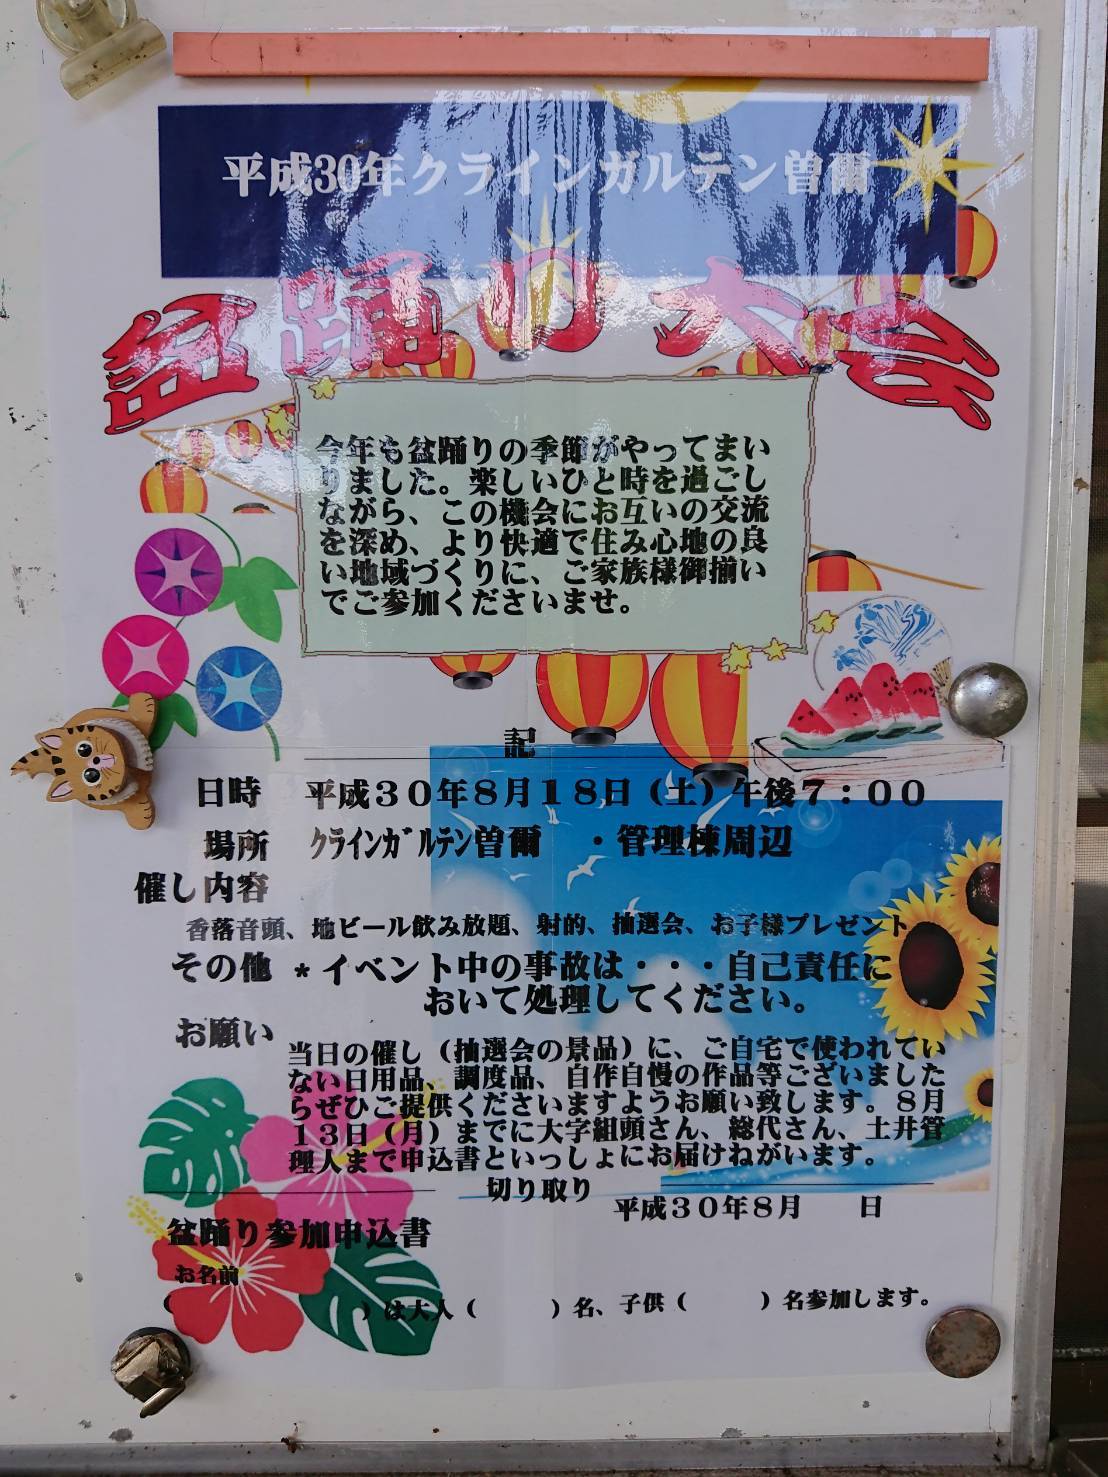 平成30年クラインガルテン曽爾
盆踊り大会
今年も盆踊りの季節がやってまい
りました。楽しいひと時を過ごし
ながら、この機会にお互いの交流
を深め、より快適で住み心地の良
い地域づくりに、ご家族様御揃い
でご参加くださいませ。
記
日時 平成３０年８月１８日（土）午後７：００
場所 ｸﾗｲﾝｶﾞﾙﾃﾝ曽爾 ・管理棟周辺
催し内容
香落音頭、地ビール飲み放題、射的、抽選会、お子様プレゼント
その他 ＊イベント中の事故は・・・自己責任に
おいて処理してください。
お願い
当日の催し（抽選会の景品）に、ご自宅で使われてい
ない日用品、調度品、自作自慢の作品等ございました
らぜひご提供くださいますようお願い致します。８月
１３日（月）までに大字組頭さん、総代さん、土井管
理人まで申込書といっしょにお届けねがいます。
切り取り
平成３０年８月 日
盆踊り参加申込書
お名前
（ ）は大人（ ）名、子供（ ）名参加します。